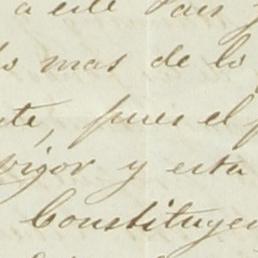 a este Pais
mas de lo
pues el
vigor y esta
Constituyen